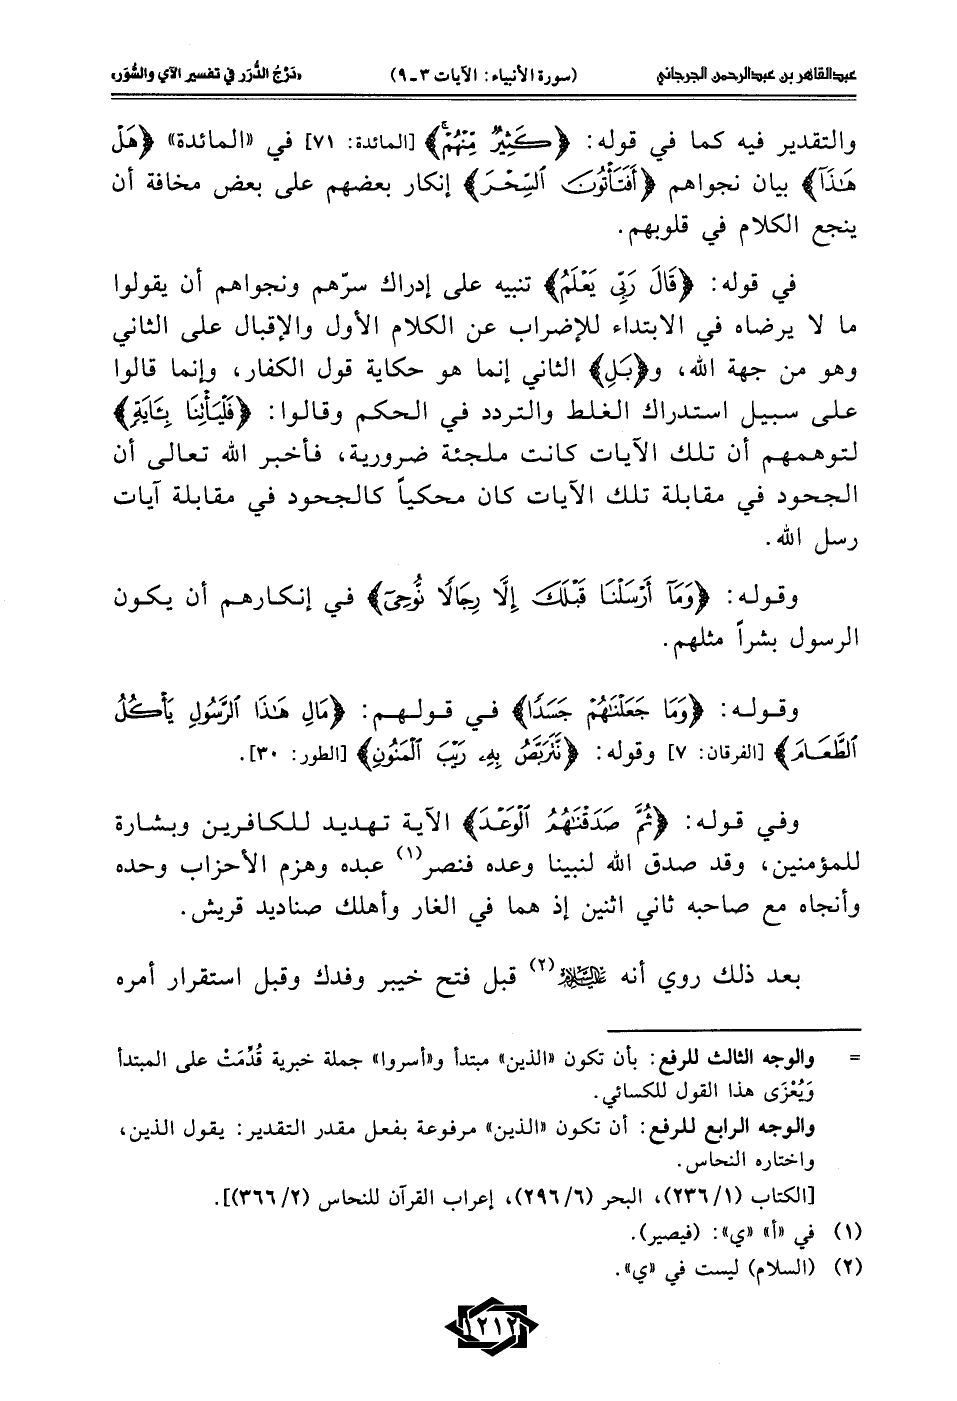 عبدالقاهر بن عبدالرحمن الجرجاني (سورة الأنبياء: الآيات ٣-٩) «دَرْجُ الدُّرَر في تفسير الآي والسُّوَر»
والتقدير فيه كما في قوله: ﴿كَثِيرٌ مِّنْهُمْ﴾ [المائدة: ٧١] في «المائدة» ﴿هَلْ
هَٰذَآ﴾ بيان نجواهم ﴿أَفَتَأْتُونَ ٱلسِّحْرَ﴾ إنكار بعضهم على بعض مخافة أن
ينجع الكلام في قلوبهم.
في قوله: ﴿قَالَ رَبِّى يَعْلَمُ﴾ تنبيه على إدراك سرّهم ونجواهم أن يقولوا
ما لا يرضاه في الابتداء للإضراب عن الكلام الأول والإقبال على الثاني
وهو من جهة الله، و﴿بَلِ﴾ الثاني إنما هو حكاية قول الكفار، وإنما قالوا
على سبيل استدراك الغلط والتردد في الحكم وقالوا: ﴿فَلْيَأْتِنَا بِـَٔايَةٍ﴾
لتوهمهم أن تلك الآيات كانت ملجئة ضرورية، فأخبر الله تعالى أن
الجحود في مقابلة تلك الآيات كان محكياً كالجحود في مقابلة آيات
رسل الله.
وقوله: ﴿وَمَآ أَرْسَلْنَا قَبْلَكَ إِلَّا رِجَالًا نُّوحِىٓ﴾ في إنكارهم أن يكون
الرسول بشراً مثلهم.
وقوله: ﴿وَمَا جَعَلْنَٰهُمْ جَسَدًا﴾ في قولهم: ﴿مَالِ هَٰذَا ٱلرَّسُولِ يَأْكُلُ
ٱلطَّعَامَ﴾ [الفرقان: ٧] وقوله: ﴿نَّتَرَبَّصُ بِهِۦ رَيْبَ ٱلْمَنُونِ﴾ [الطور: ٣٠].
وفي قوله: ﴿ثُمَّ صَدَقْنَٰهُمُ ٱلْوَعْدَ﴾ الآية تهديد للكافرين وبشارة
للمؤمنين، وقد صدق الله لنبينا وعده فنصر(١) عبده وهزم الأحزاب وحده
وأنجاه مع صاحبه ثاني اثنين إذ هما في الغار وأهلك صناديد قريش.
بعد ذلك روي أنه عليه السلام(٢) قبل فتح خيبر وفدك وقبل استقرار أمره
= والوجه الثالث للرفع: بأن تكون «الذين» مبتدأ و«أسروا» جملة خبرية قُدِّمَتْ على المبتدأ
وَيُعْزَى هذا القول للكسائي.
والوجه الرابع للرفع: أن تكون «الذين» مرفوعة بفعل مقدر التقدير: يقول الذين،
واختاره النحاس.
[الكتاب (٢٣٦/١)، البحر (٢٩٦/٦)، إعراب القرآن للنحاس (٣٦٦/٢)].
(١) في «أ» «ي»: (فيصير).
(٢) (السلام) ليست في «ي».
١٢١٢